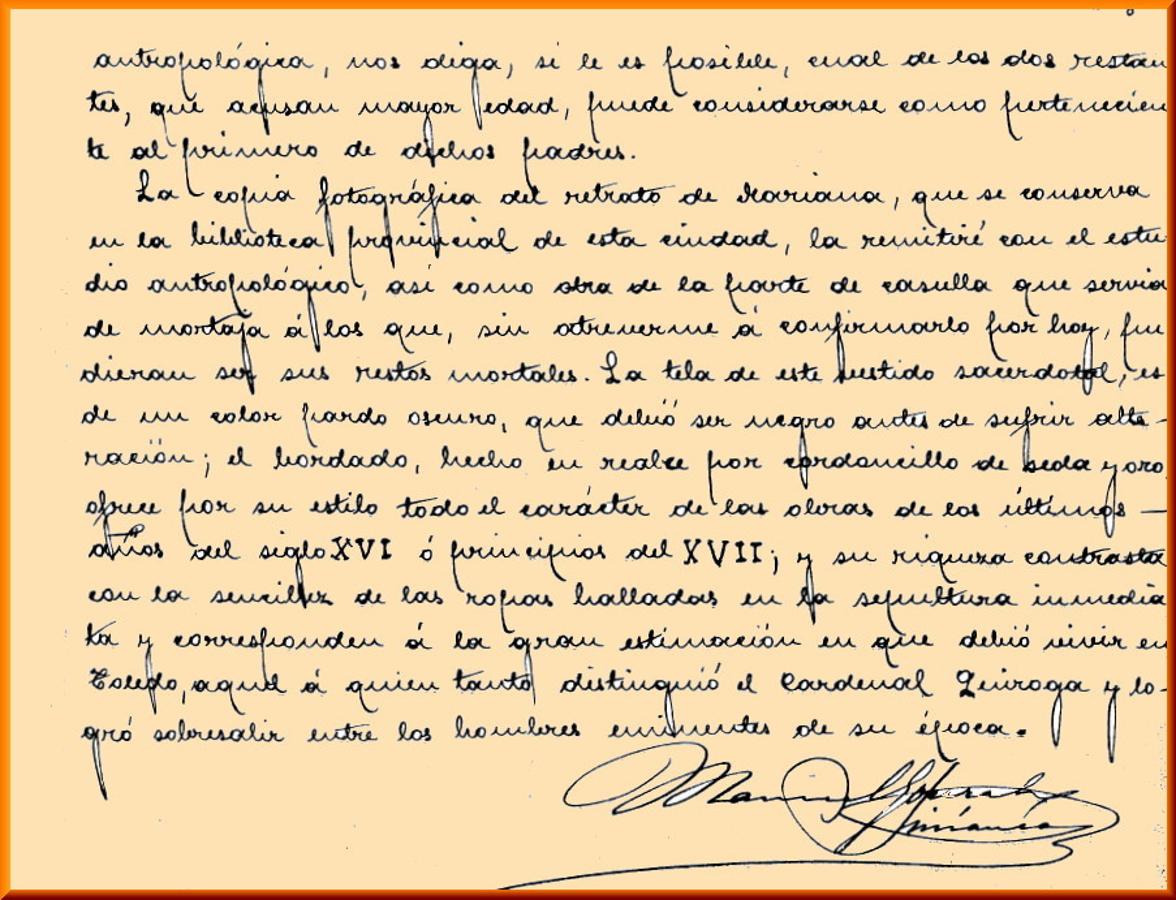 antropológica, nos diga, si le es posible, cual de los dos restan
tes, que acusan mayor edad, puede considerarse como pertenecien
te al primero de dichos padres.
La copia fotográfica del retrato de Mariana, que se conserva
en la biblioteca provincial de esta ciudad, la remitiré con el estu
dio antropológico, así como otra de la parte de casulla que servia
de mortaja á los que, sin atreverme á confirmarlo por hoy, pu
dieran ser sus restos mortales. La tela de este vestido sacerdotal, es
de un color pardo oscuro, que debió ser negro antes de sufrir alte-
ración; el bordado, hecho en realce por cordoncillo de seda y oro
ofrece por su estilo todo el carácter de las obras de los últimos —
años del siglo XVI ó principios del XVII; y su riqueza contrasta
con la sencillez de las ropas halladas en la sepultura inmedia
ta y corresponden á la gran estimación en que debió vivir en
Toledo, aquel á quien tanto distinguió el Cardenal Quiroga y lo-
gró sobresalir entre los hombres eminentes de su época.
Manuel